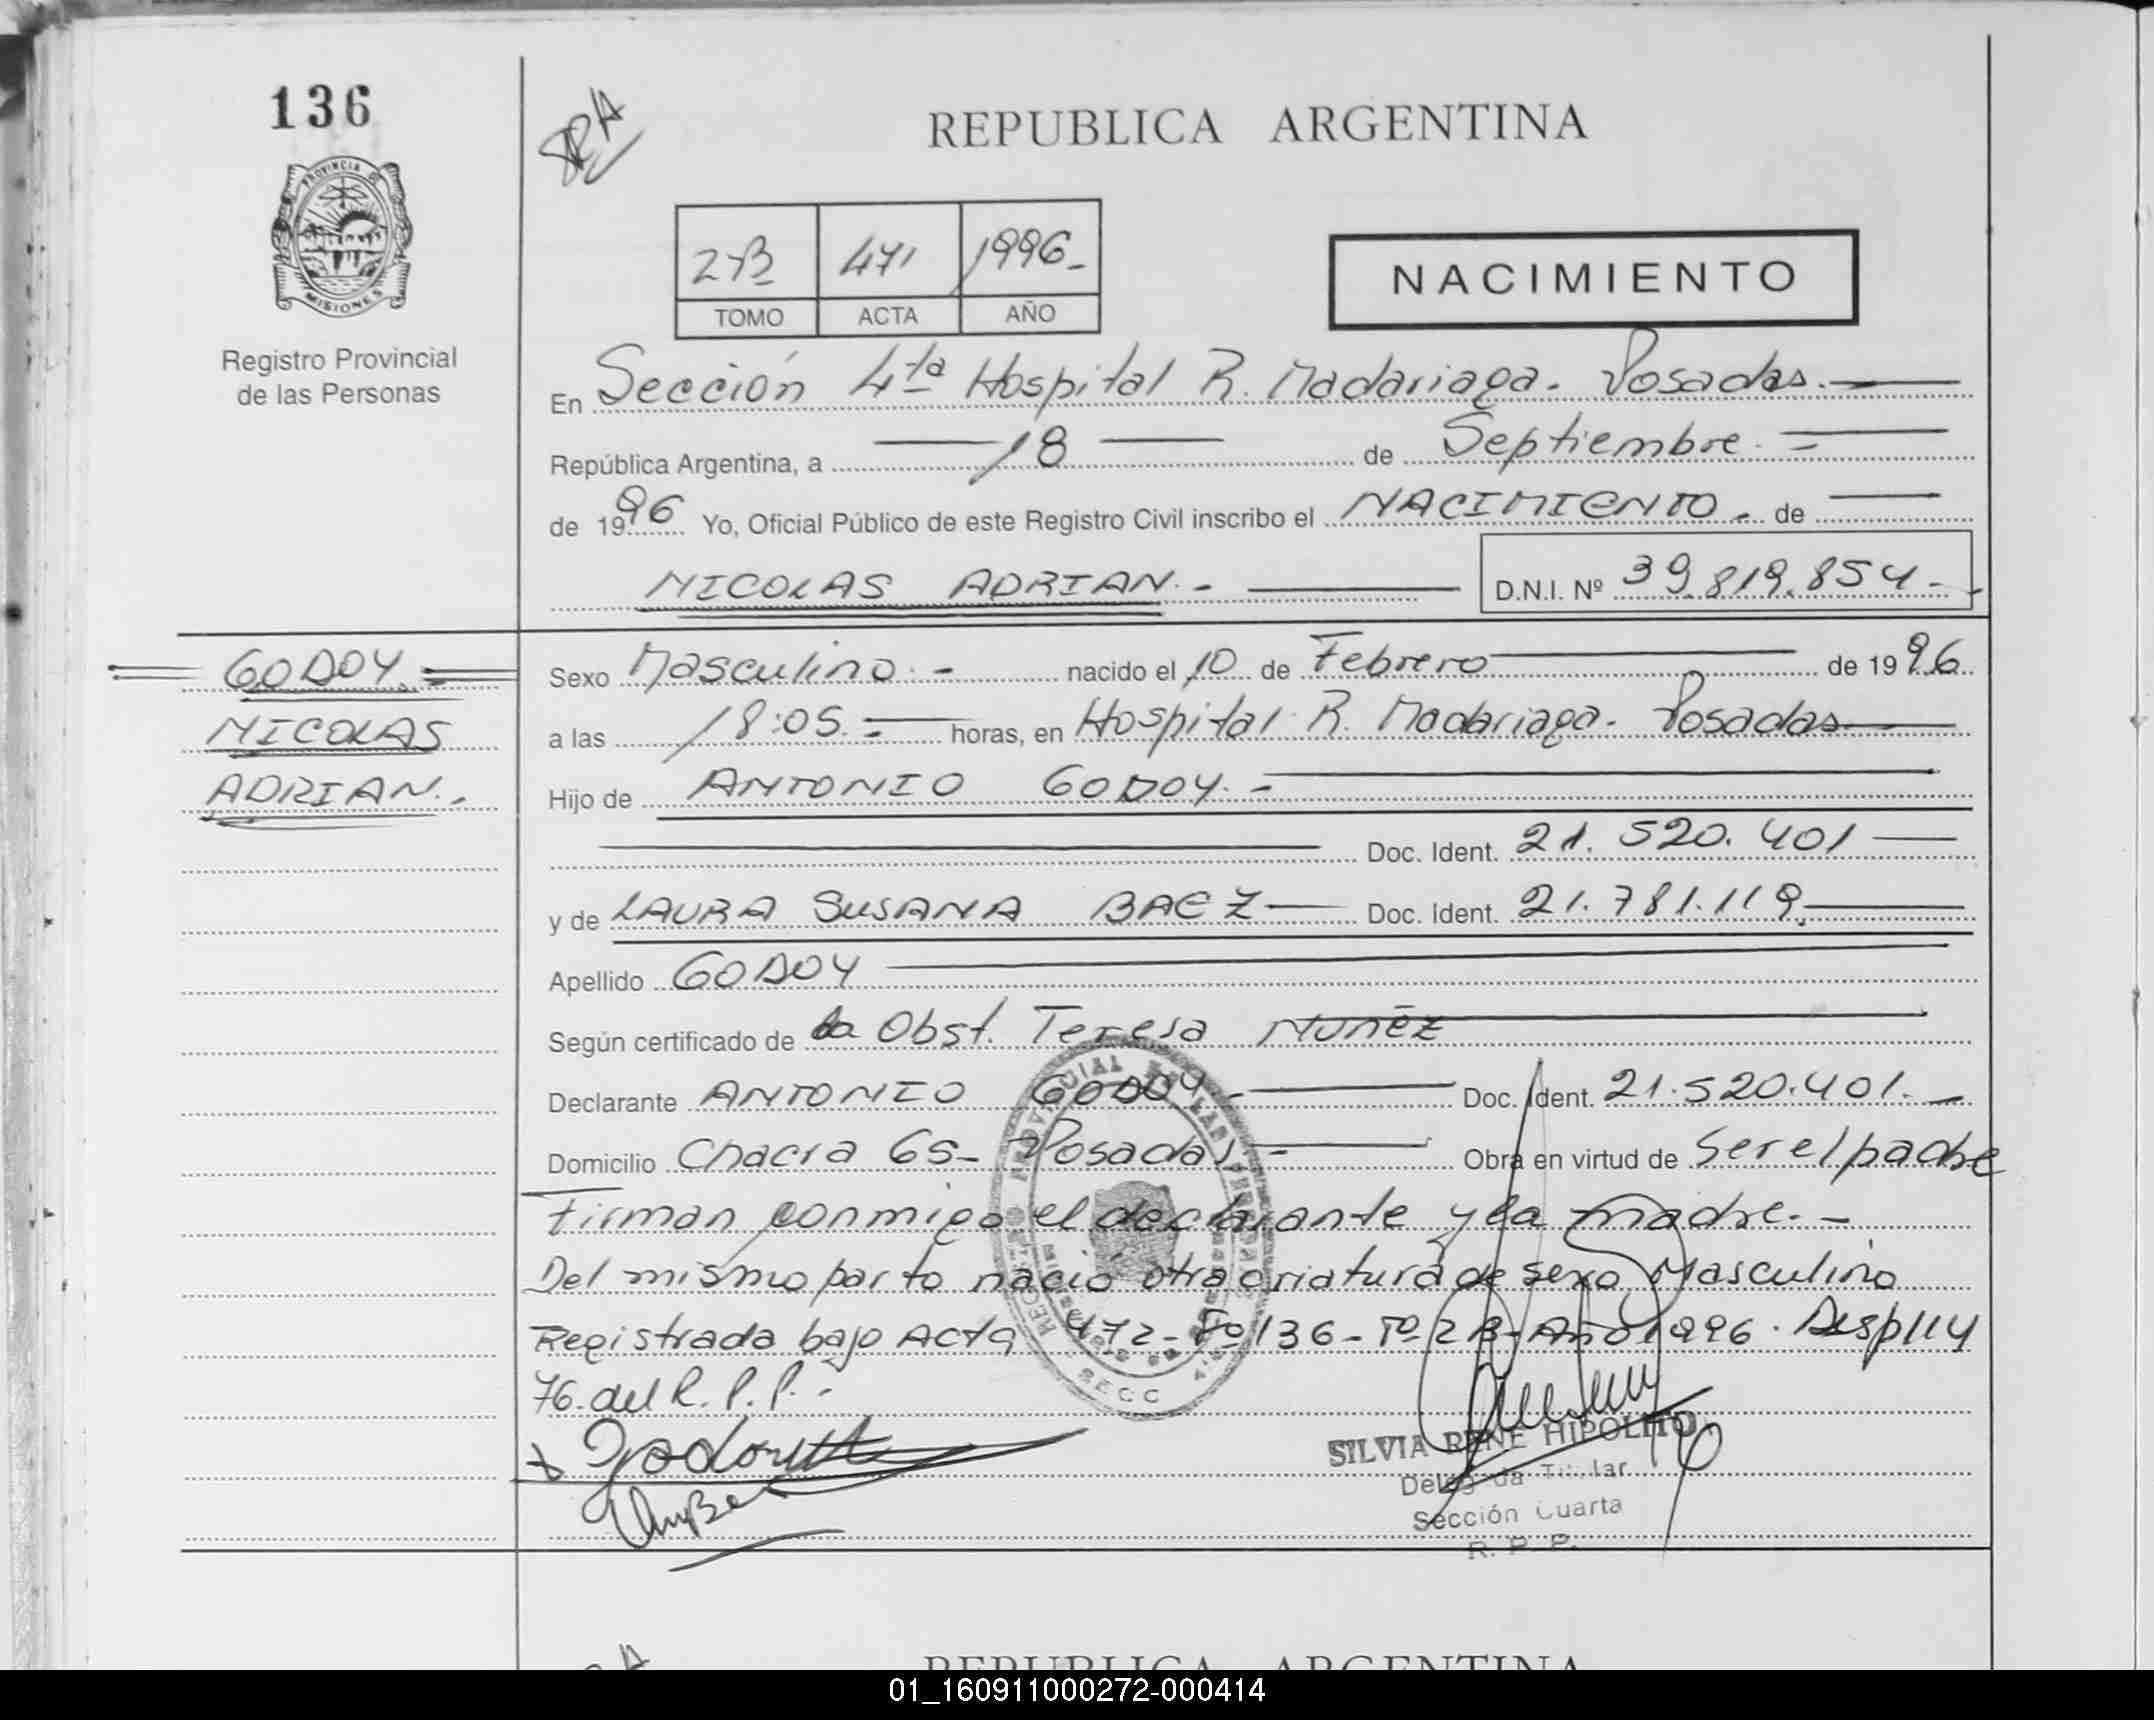 136
PROVINCIA DE
MISIONES
Registro Provincial
de las Personas
REPUBLICA ARGENTINA
2-B 471 1996-
TOMO ACTA AÑO
NACIMIENTO
En Sección 4ta Hospital R. Madariaga. Posadas.
República Argentina, a 18 de Septiembre.
de 1996 Yo, Oficial Público de este Registro Civil inscribo el NACIMIENTO. de
NICOLAS ADRIAN.- D.N.I. Nº 39.819.854.-
GODOY
NICOLAS
ADRIAN.-
Sexo Masculino.- nacido el 10 de Febrero de 1996.
a las 18:05.- horas, en Hospital R. Madariaga. Posadas
Hijo de ANTONIO GODOY.-
Doc. Ident. 21.520.401
y de LAURA SUSANA BAEZ Doc. Ident. 21.781.119.
Apellido GODOY
Según certificado de la Obst. Teresa Nuñez
Declarante ANTONIO GODOY.- Doc. Ident. 21.520.401.-
Domicilio Chacra 65- Posadas.- Obra en virtud de Ser el padre
Firman conmigo el declarante y la madre.-
Del mismo parto nació otra criatura de sexo Masculino
Registrada bajo Acta 472-Fº136-Tº2B-Año1996. Disp 114
76. del R.P.P.-
SILVIA RENE HIPOLITO
Delegada Titular
Sección Cuarta
R. P. P.
REPUBLICA ARGENTINA
01_160911000272-000414